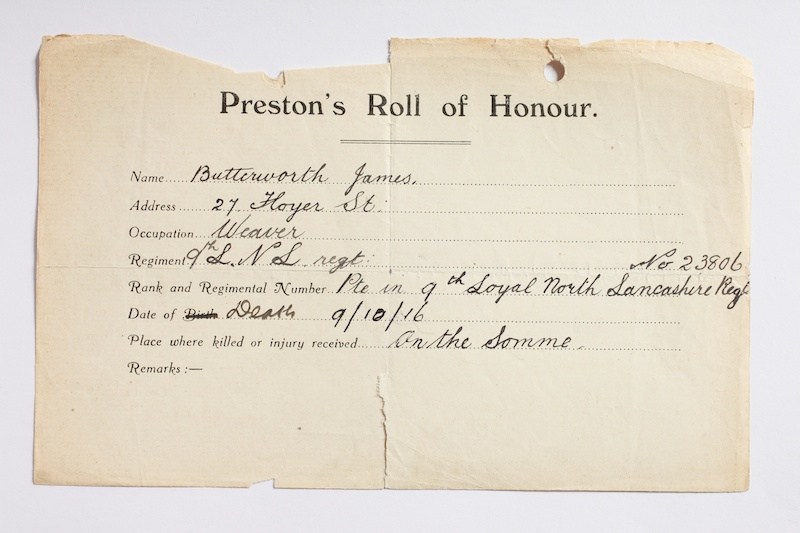 Preston's Roll of Honour.
Name Butterworth James.
Address 27 Floyer St.
Occupation Weaver
Regiment 9th L. N L regt. No 23806
Rank and Regimental Number Pte in 9th Loyal North Lancashire Regt
Date of Birth Death 9/10/16
Place where killed or injury received On the Somme.
Remarks :—